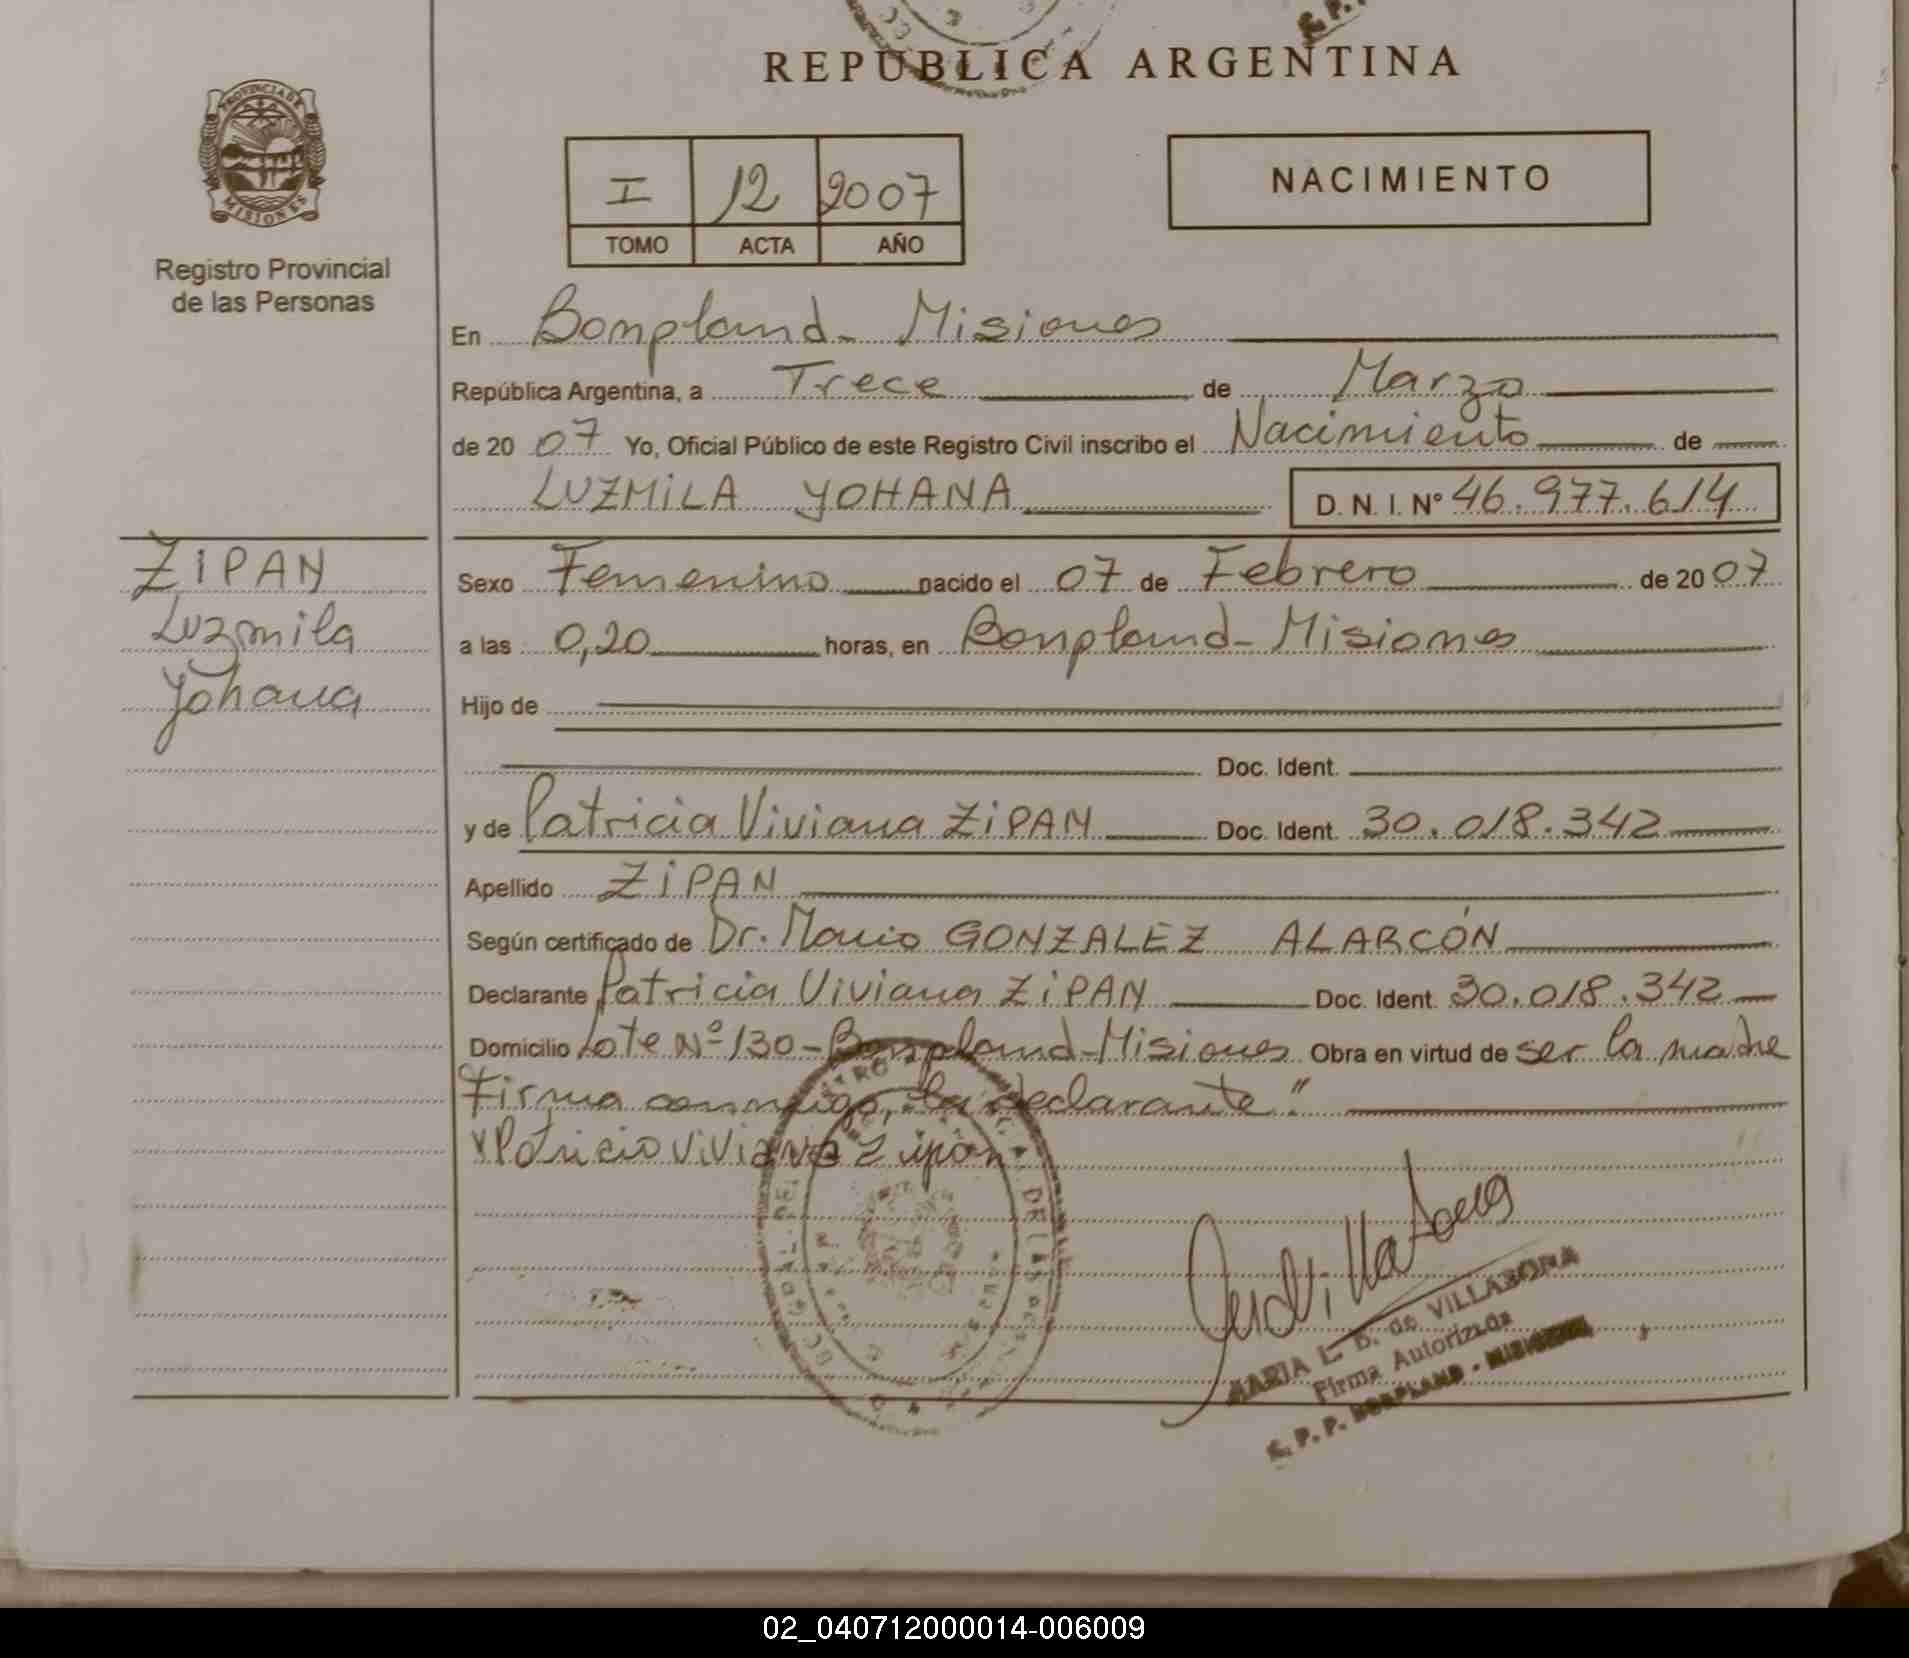 REPUBLICA ARGENTINA
PROVINCIA DE
MISIONES
Registro Provincial
de las Personas
I 12 2007
TOMO ACTA AÑO
NACIMIENTO
En Bonpland - Misiones
República Argentina, a Trece de Marzo
de 2007 Yo, Oficial Público de este Registro Civil inscribo el Nacimiento de
LUZMILA YOHANA D. N. I. Nº 46.977.614
ZIPAN
Luzmila
Yohana
Sexo Femenino nacido el 07 de Febrero de 2007
a las 0,20 horas, en Bonpland - Misiones
Hijo de
Doc. Ident.
y de Patricia Viviana ZIPAN Doc. Ident. 30.018.342
Apellido ZIPAN
Según certificado de Dr. Mario GONZALEZ ALARCÓN
Declarante Patricia Viviana ZIPAN Doc. Ident. 30.018.342
Domicilio Lote Nº 130 - Bonpland - Misiones Obra en virtud de ser la madre
Firma conmigo, "la declarante"
x Patricia Viviana Zipan
MARIA L. B. de VILLABONA
Firma Autorizada
R. P. P. BONPLAND - MISIONES
02_040712000014-006009